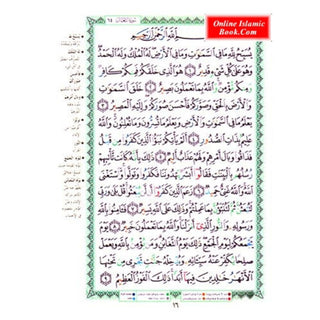 Online Islamic
Book.Com
بِسْمِ اللَّهِ الرَّحْمَٰنِ الرَّحِيمِ
يُسَبِّحُ لِلَّهِ مَا فِي السَّمَٰوَٰتِ وَمَا فِي الْأَرْضِ لَهُ الْمُلْكُ وَلَهُ الْحَمْدُ
وَهُوَ عَلَىٰ كُلِّ شَيْءٍ قَدِيرٌ ١ هُوَ الَّذِي خَلَقَكُمْ فَمِنكُمْ كَافِرٌ
وَمِنكُم مُّؤْمِنٌ وَاللَّهُ بِمَا تَعْمَلُونَ بَصِيرٌ ٢ خَلَقَ السَّمَٰوَٰتِ
وَالْأَرْضَ بِالْحَقِّ وَصَوَّرَكُمْ فَأَحْسَنَ صُوَرَكُمْ وَإِلَيْهِ الْمَصِيرُ ٣
يَعْلَمُ مَا فِي السَّمَٰوَٰتِ وَالْأَرْضِ وَيَعْلَمُ مَا تُسِرُّونَ وَمَا تُعْلِنُونَ وَاللَّهُ
عَلِيمٌ بِذَاتِ الصُّدُورِ ٤ أَلَمْ يَأْتِكُمْ نَبَؤُا الَّذِينَ كَفَرُوا مِن قَبْلُ
فَذَاقُوا وَبَالَ أَمْرِهِمْ وَلَهُمْ عَذَابٌ أَلِيمٌ ٥ ذَٰلِكَ بِأَنَّهُ كَانَت تَّأْتِيهِمْ
رُسُلُهُم بِالْبَيِّنَٰتِ فَقَالُوا أَبَشَرٌ يَهْدُونَنَا فَكَفَرُوا وَتَوَلَّوا وَّاسْتَغْنَى
اللَّهُ وَاللَّهُ غَنِيٌّ حَمِيدٌ ٦ زَعَمَ الَّذِينَ كَفَرُوا أَن لَّن يُبْعَثُوا قُلْ بَلَىٰ وَرَبِّي
لَتُبْعَثُنَّ ثُمَّ لَتُنَبَّؤُنَّ بِمَا عَمِلْتُمْ وَذَٰلِكَ عَلَى اللَّهِ يَسِيرٌ ٧ فَآمِنُوا بِاللَّهِ
وَرَسُولِهِ وَالنُّورِ الَّذِي أَنزَلْنَا وَاللَّهُ بِمَا تَعْمَلُونَ خَبِيرٌ ٨ يَوْمَ
يَجْمَعُكُمْ لِيَوْمِ الْجَمْعِ ذَٰلِكَ يَوْمُ التَّغَابُنِ وَمَن يُؤْمِن بِاللَّهِ وَيَعْمَلْ
صَالِحًا يُكَفِّرْ عَنْهُ سَيِّئَاتِهِ وَيُدْخِلْهُ جَنَّٰتٍ تَجْرِي مِن تَحْتِهَا
الْأَنْهَٰرُ خَٰلِدِينَ فِيهَا أَبَدًا ذَٰلِكَ الْفَوْزُ الْعَظِيمُ ٩